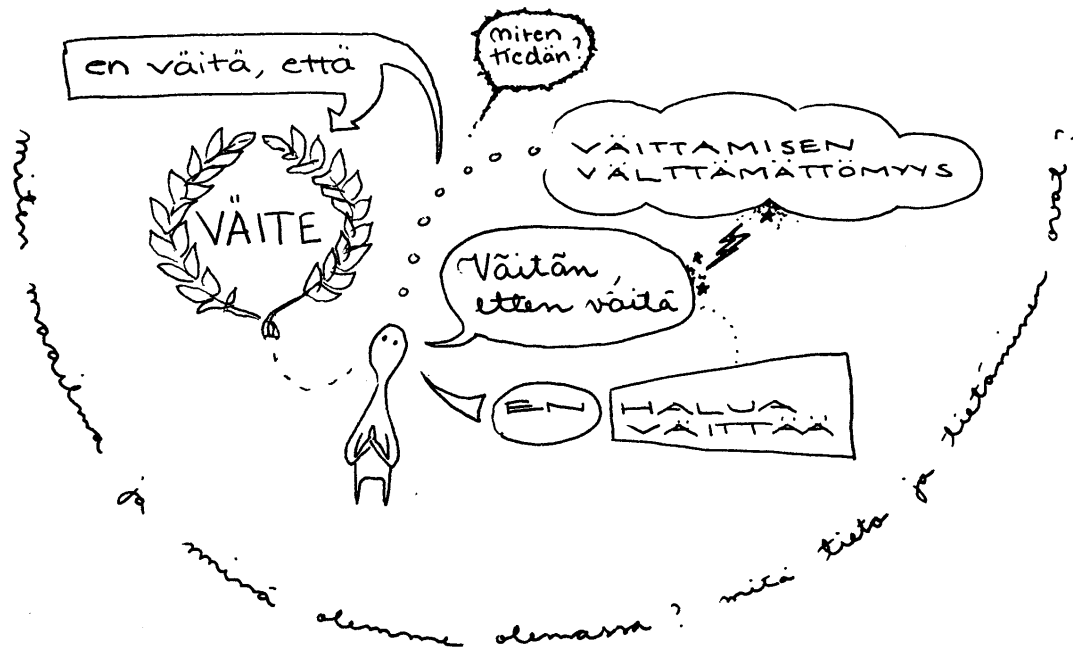 miten
tiedän?
en väitä, että
VÄITTAMISEN
VÄLTTÄMÄTTÖMYYS
VÄITE
Väitän,
etten väitä
EN
HALUA
VÄITTÄÄ
miten maailma ja minä olemme olemassa? mitä tieto ja tietäminen ovat?